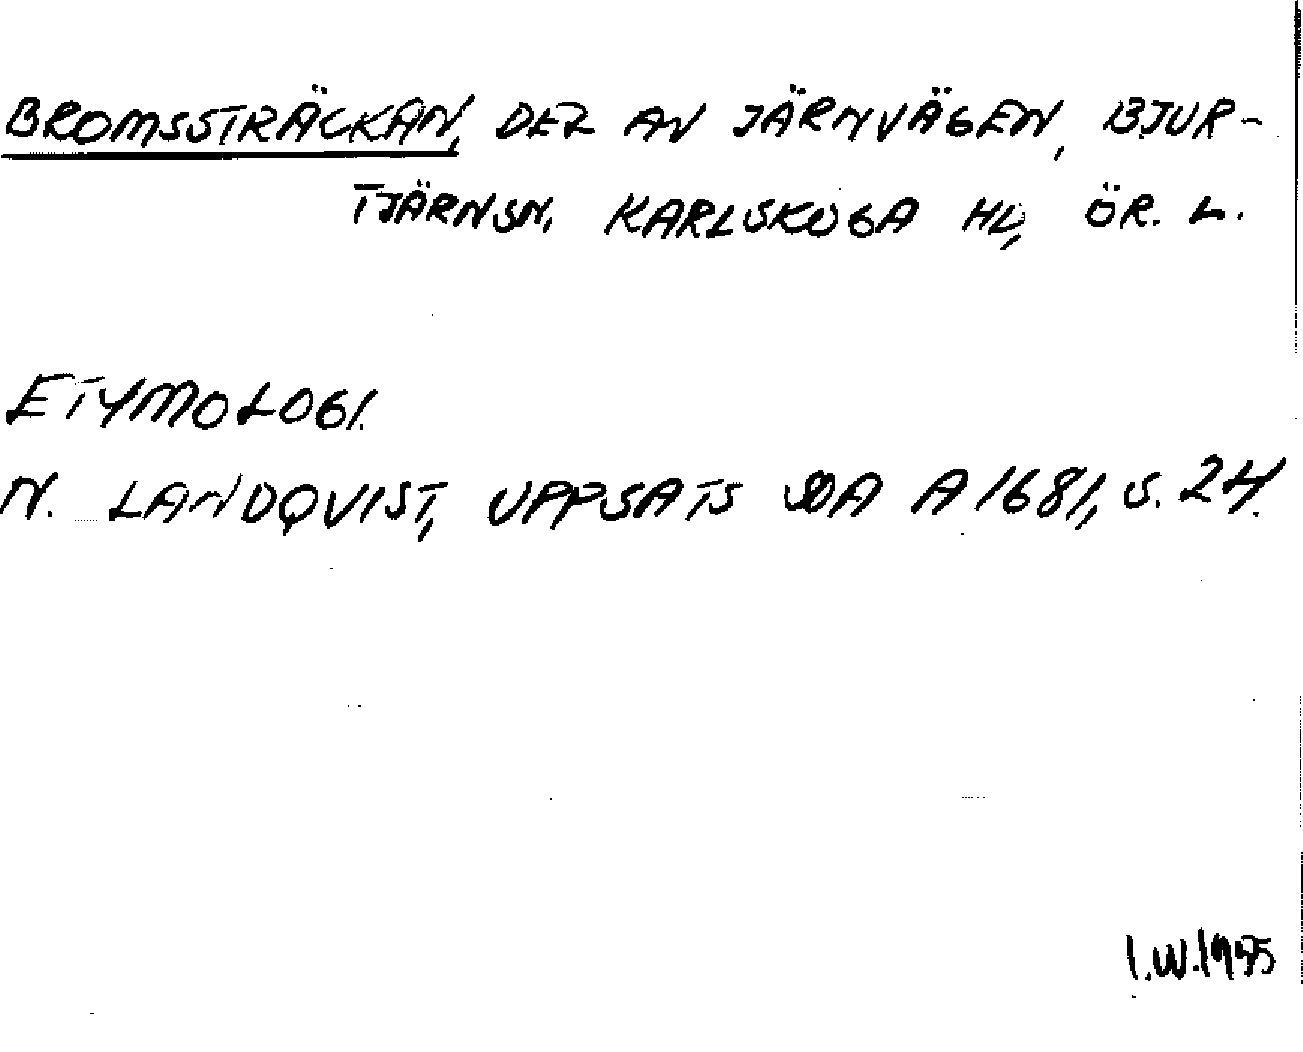 BROMSSTRÄCKAN, DEL AV JÄRNVÄGEN, BJUR-
TJÄRNSN, KARLSKOGA HD, ÖR. L.
ETYMOLOGI.
N. LANDQVIST, UPPSATS SOA A 1681, S. 24.
I.W.1955